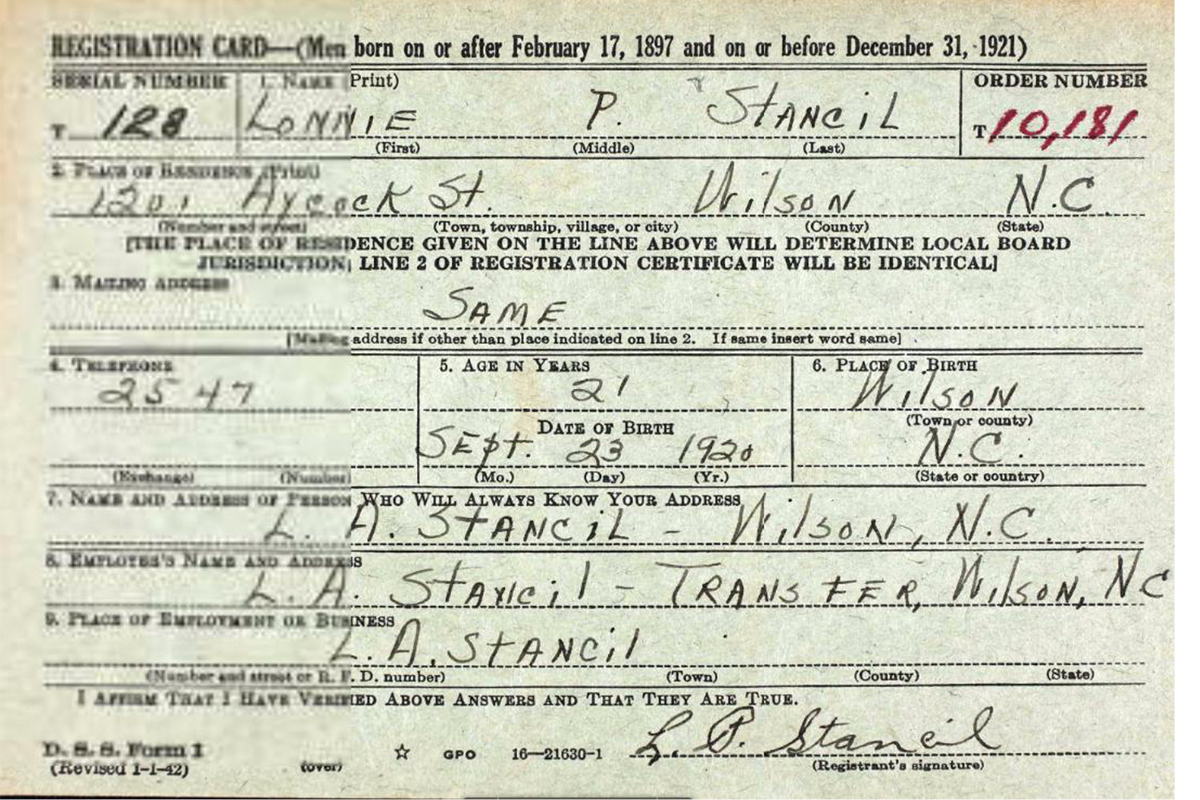 REGISTRATION CARD—(Men born on or after February 17, 1897 and on or before December 31, 1921)
SERIAL NUMBER 1. NAME (Print) ORDER NUMBER
T 128 LONNIE P. STANCIL T 10,181
(First) (Middle) (Last)
2. PLACE OF RESIDENCE (Print)
1201 Aycock St. Wilson N.C.
(Number and street) (Town, township, village, or city) (County) (State)
[THE PLACE OF RESIDENCE GIVEN ON THE LINE ABOVE WILL DETERMINE LOCAL BOARD
JURISDICTION; LINE 2 OF REGISTRATION CERTIFICATE WILL BE IDENTICAL]
3. MAILING ADDRESS
SAME
[Mailing address if other than place indicated on line 2. If same insert word same]
4. TELEPHONE 5. AGE IN YEARS 6. PLACE OF BIRTH
2547 21 Wilson
DATE OF BIRTH (Town or county)
Sept. 23 1920 N.C.
(Exchange) (Number) (Mo.) (Day) (Yr.) (State or country)
7. NAME AND ADDRESS OF PERSON WHO WILL ALWAYS KNOW YOUR ADDRESS
L. A. STANCIL - Wilson, N.C.
8. EMPLOYER'S NAME AND ADDRESS
L. A. Stancil - TRANSFER, Wilson, NC
9. PLACE OF EMPLOYMENT OR BUSINESS
L. A. STANCIL
(Number and street or R. F. D. number) (Town) (County) (State)
I AFFIRM THAT I HAVE VERIFIED ABOVE ANSWERS AND THAT THEY ARE TRUE.
L. P. Stancil
D. S. S. Form 1 ☆ GPO 16—21630-1
(Revised 1-1-42) (over) (Registrant's signature)